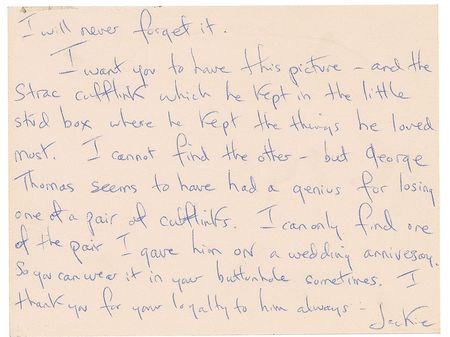 I will never forget it.
I want you to have this picture - and the
Strac cufflink which he kept in the little
stud box where he kept the things he loved
most. I cannot find the other - but George
Thomas seems to have had a genius for losing
one of a pair of cufflinks. I can only find one
of the pair I gave him on a wedding anniversary.
So you can wear it in your buttonhole sometimes. I
thank you for your loyalty to him always -
Jackie